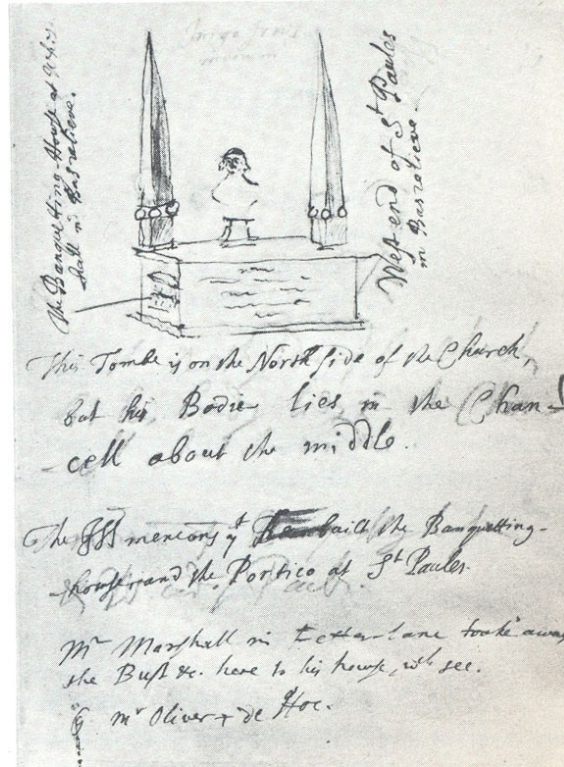 Inigo Jones
The Banqueting House at Whit
hall in Basrelieve.
West end of St Paules
in Basrelieve.
This Tombe is on the North side of the Church,
but his Bodie lies in the Chan-
cell about the middle.
The mencons yt built the Banquetting-
house and the Portico at St Paules.
Mr Marshall in Fetter-lane tooke away
the Bust &c. here to his house, wch see.
Mr Oliver + de Hoc.